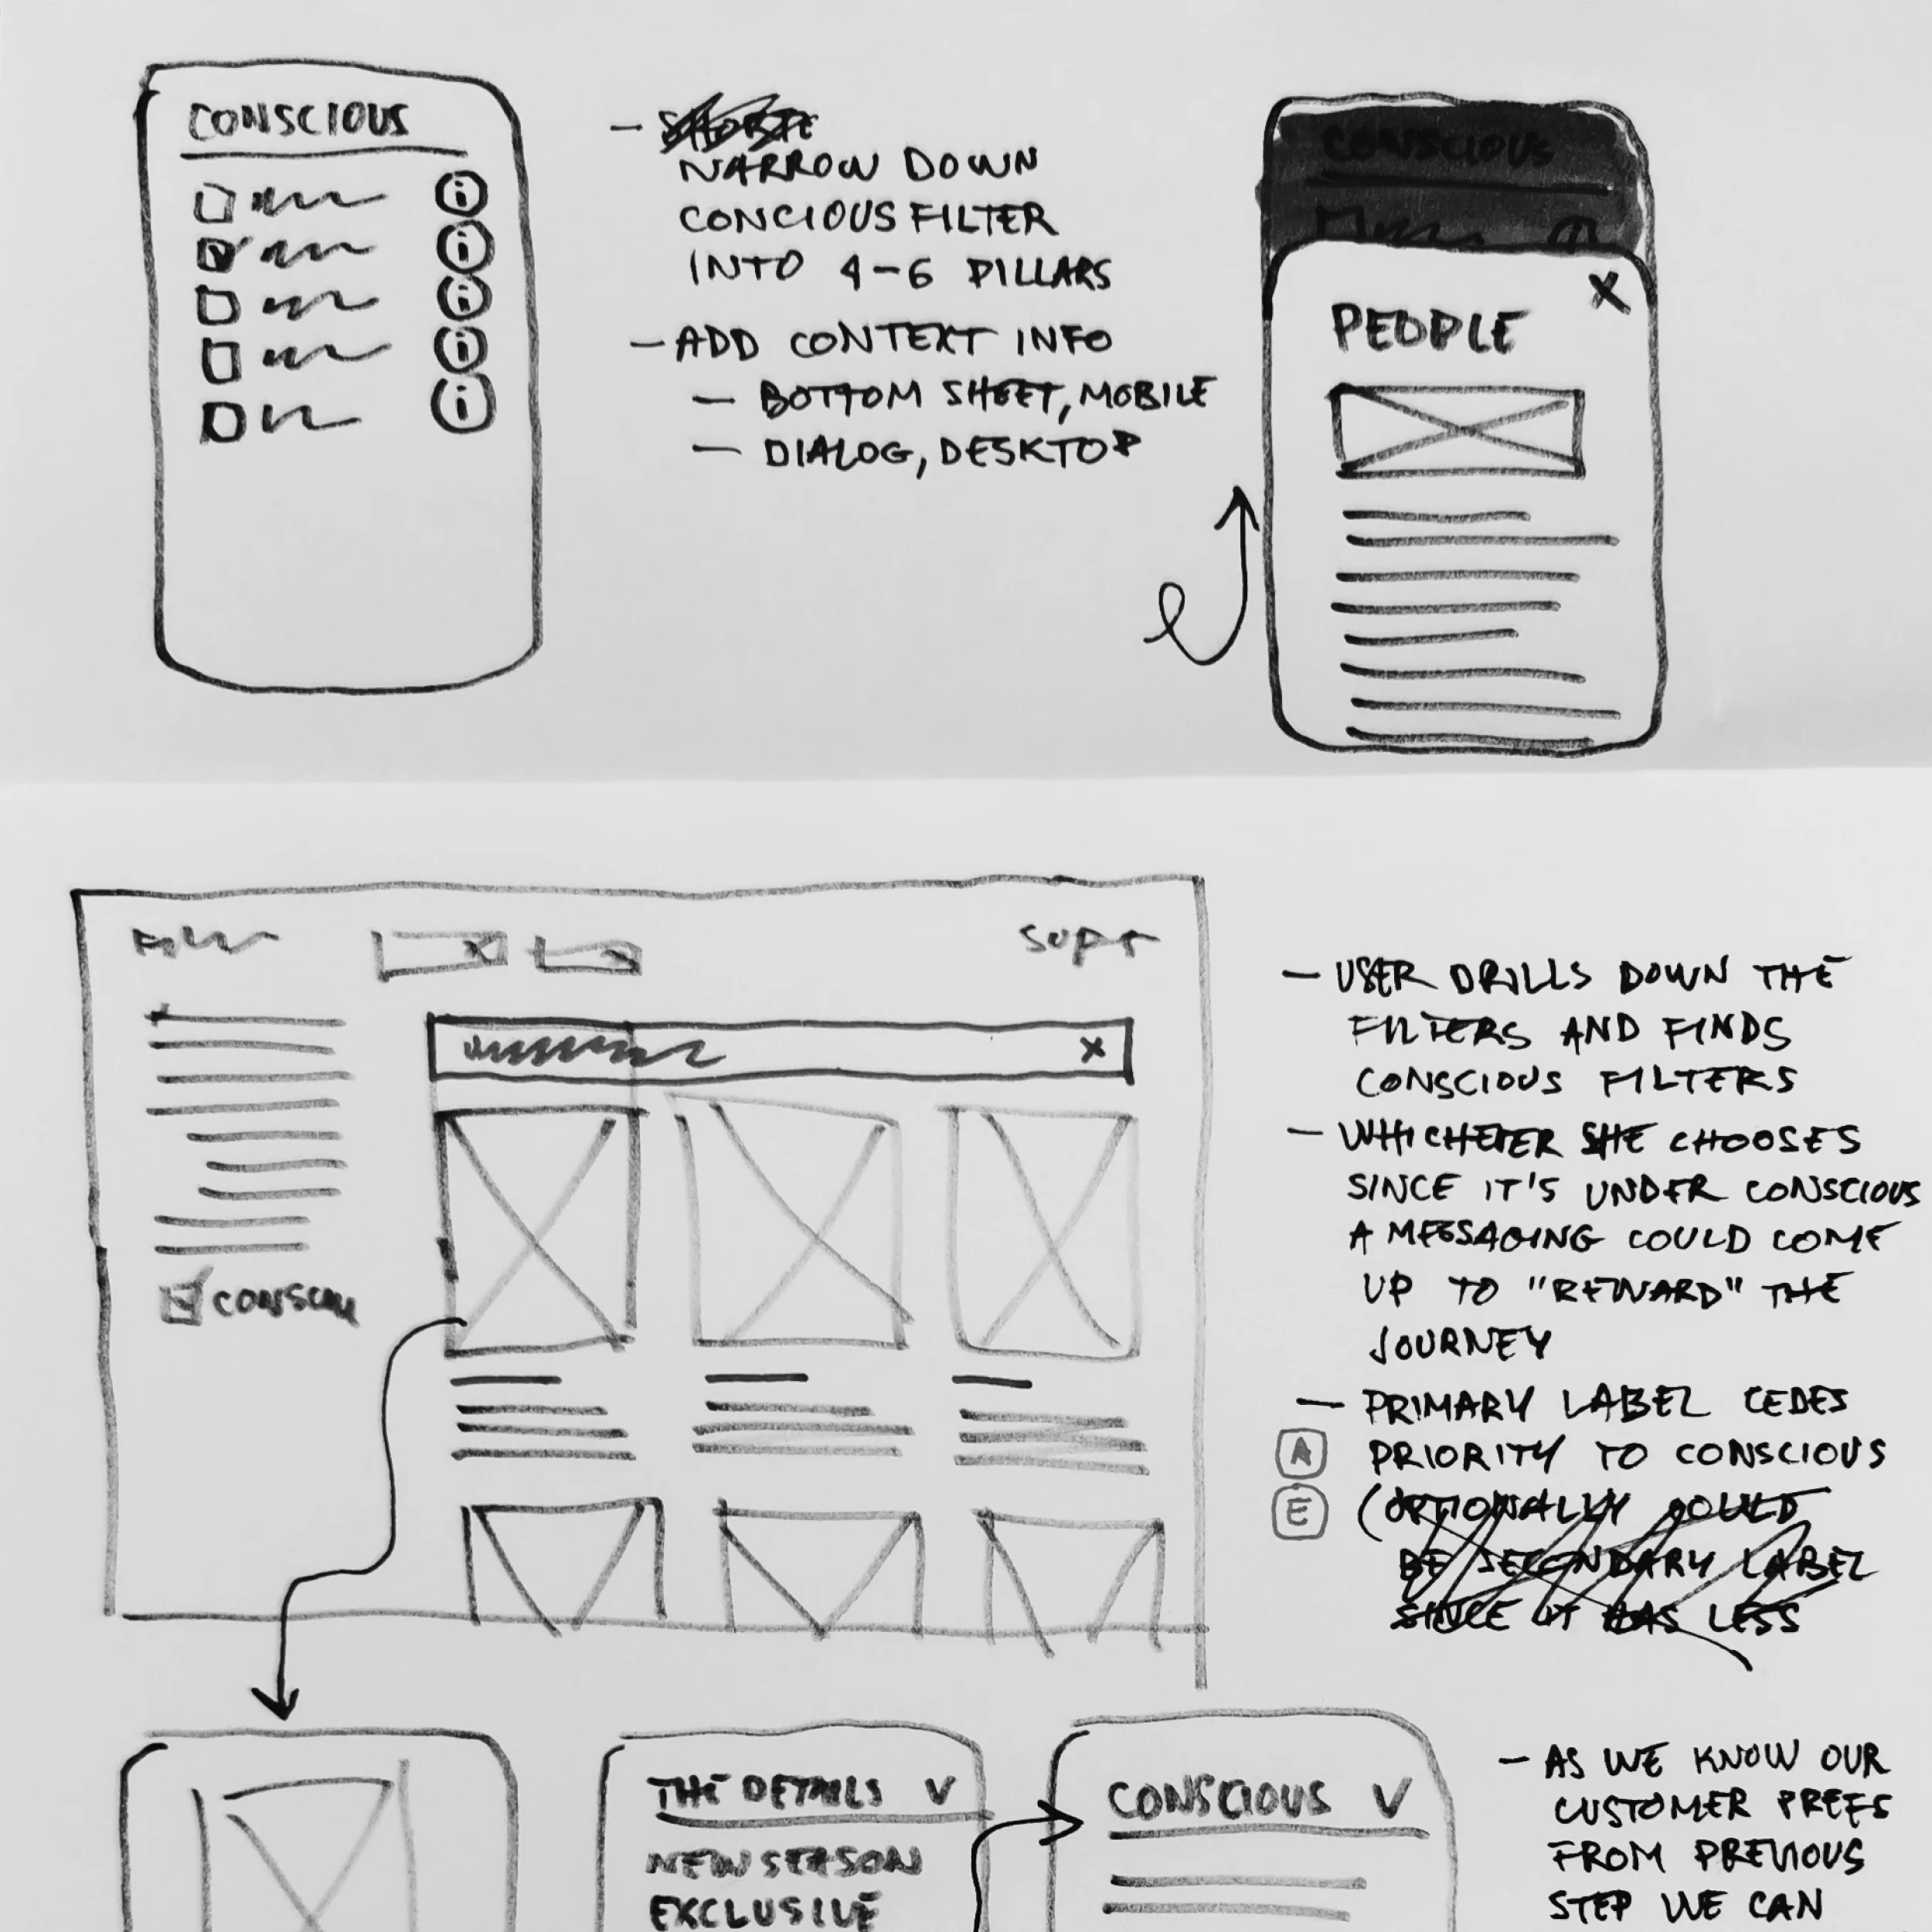 CONSCIOUS
i
i
i
i
i
-
NARROW DOWN
CONCIOUS FILTER
INTO 4-6 PILLARS
- ADD CONTEXT INFO
- BOTTOM SHEET, MOBILE
- DIALOG, DESKTOP
CONSCIOUS
i
X
PEOPLE
SORT
X
- USER DRILLS DOWN THE
FILTERS AND FINDS
CONSCIOUS FILTERS
- WHICHEVER SHE CHOOSES
SINCE IT'S UNDER CONSCIOUS
A MESSAGING COULD COME
UP TO "REWARD" THE
JOURNEY
- PRIMARY LABEL CEDES
A PRIORITY TO CONSCIOUS
E (OPTIONALLY COULD
BE SECONDARY LABEL
SINCE IT HAS LESS
THE DETAILS V
NEW SEASON
EXCLUSIVE
CONSCIOUS V
- AS WE KNOW OUR
CUSTOMER PREFS
FROM PREVIOUS
STEP WE CAN